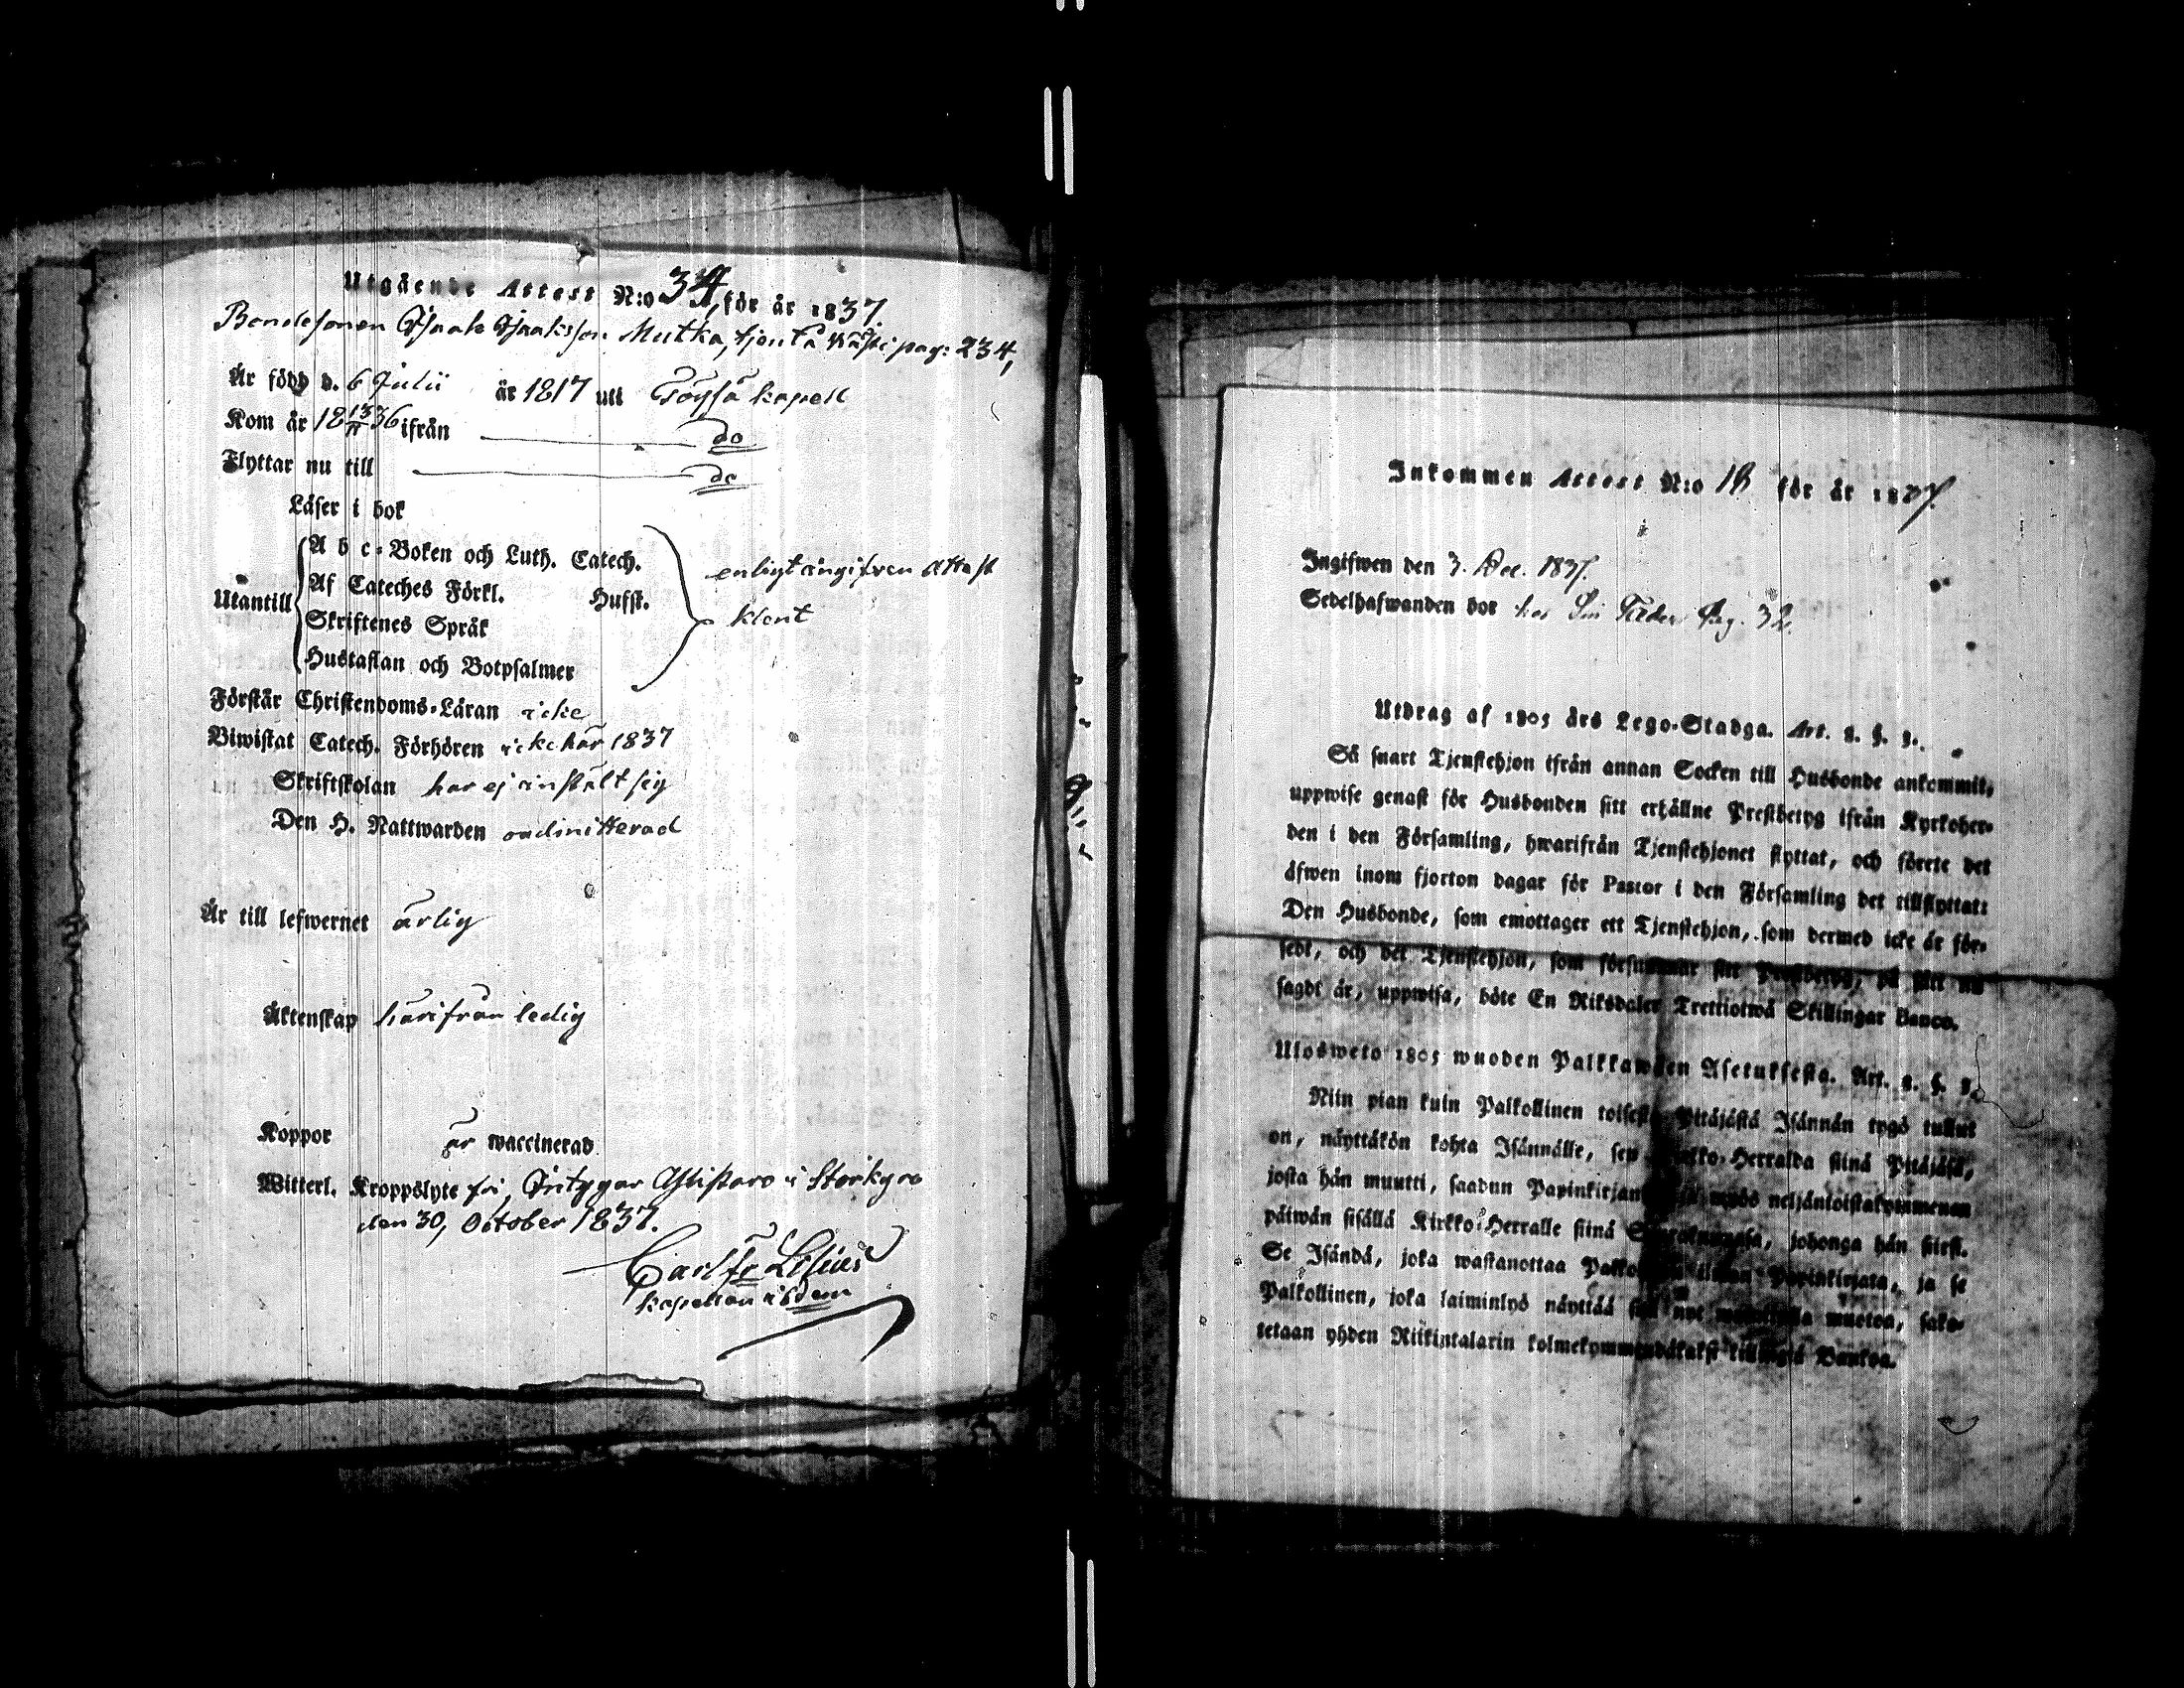 Utgående Attest N:o 34, för år 1837
Bondesonen Isaak Isaaksson Mutka, tjent å pag: 234,
Är född d. 6 Julii år 1817 uti Töysä kapell
Kom år 18 13/11 36 ifrån do
Flyttar nu till do
Läser i bok
A b c-Boken och Luth. Catech.
Af Cateches Förkl. Husst.
Utantill
Skriftenes Språk
Hustaflan och Botpsalmer
enligt ingifven attest
klent
Förstår Christendoms-Läran icke
Biwistat Catech. Förhören icke här 1837
Skriftskolan har ej instält sig
Den H. Nattwarden oadmitterad
Är till lefwernet ärlig
Äktenskap härifrån ledig
Koppor är waccinerad
Witterl. Kroppslyte fri, Intygar Ylistaro i Storkyro
den 30, October 1837.
Carl Fr Lilius
kapellan ibdem
Inkommen Attest N:o 18 för år 1837.
Ingifwen den 3. Dec. 1837.
Sedelhafwanden bor hos Sin Fader Pag. 32.
Utdrag af 1805 års Lego-Stadga. Art. 2. §. 3.
Så snart Tjenstehjon ifrån annan Socken till Husbonde ankommit,
uppwise genast för Husbonden sitt erhållne Prestbetyg ifrån Kyrkoher-
den i den Församling, hwarifrån Tjenstehjonet flyttat, och förete det
äfwen inom fjorton dagar för Pastor i den Församling det tillflyttat:
Den Husbonde, som emottager ett Tjenstehjon, som dermed icke är för-
sedt, och det Tjenstehjon, som försummar sitt Prestbetyg, på sätt nu
sagdt är, uppwisa, böte En Riksdaler Trettiotwå Skillingar Banco.
Ulosweto 1805 wuoden Palkkawäen Asetuksesta. Art. 2. §. 3.
Niin pian kuin Palkollinen toisesta Pitäjästä Isännän tygö tullut
on, näyttäkön kohta Isännälle, sen Kirkko-Herralda siinä Pitäjäsä,
josta hän muutti, saadun Papinkirjan myös neljäntoistakymmenen
päiwän sisällä Kirkko-Herralle siinä Seurakunnasa, johonga hän siirsi.
Se Isändä, joka wastanottaa Palkollisen ilman Papinkirjata, ja se
Palkollinen, joka laiminlyö näyttää sitä nyt muotoa, sako-
tetaan yhden Riikintalarin kolmekymmendäkaksi killingiä Bankoa.